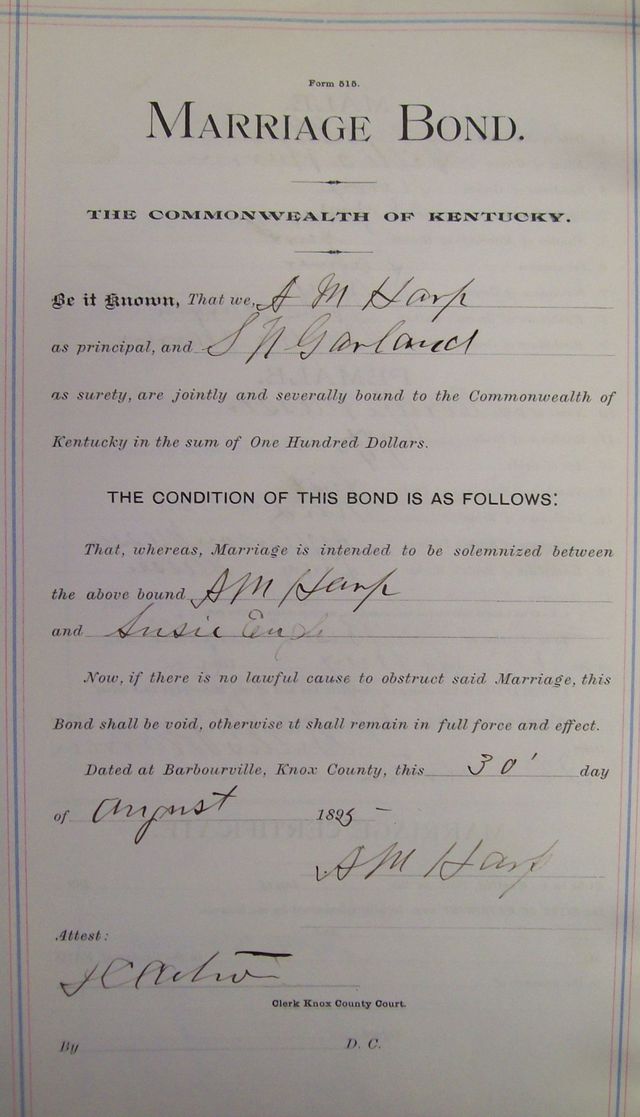 Form 515.
MARRIAGE BOND.
THE COMMONWEALTH OF KENTUCKY.
Be it Known, That we, A M Harp
as principal, and S N Garland
as surety, are jointly and severally bound to the Commonwealth of
Kentucky in the sum of One Hundred Dollars.
THE CONDITION OF THIS BOND IS AS FOLLOWS:
That, whereas, Marriage is intended to be solemnized between
the above bound A M Harp
and Susie
Now, if there is no lawful cause to obstruct said Marriage, this
Bond shall be void, otherwise it shall remain in full force and effect.
Dated at Barbourville, Knox County, this 30' day
of august 1895
A M Harp
Attest:
Clerk Knox County Court.
By D. C.